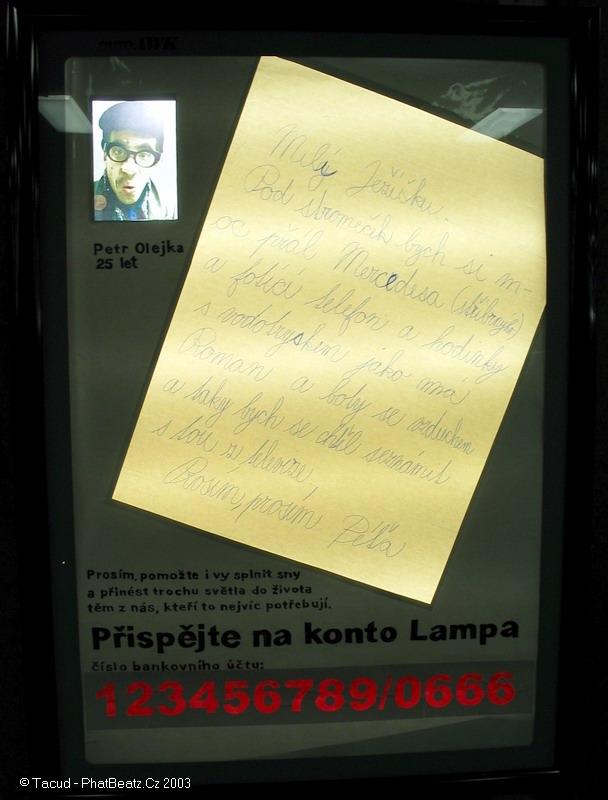 Petr Olejka
25 let
Milý Ježíčku.
Pod stromeček bych si m-
oc přál Mercedesa (stříbrnýho)
a fotící telefon a hodinky
s vodotryskem jako má
Roman a boty se vzduchem
a taky bych se chtěl seznámit
s tou z televize,
Prosím, prosím Péťa
Prosím, pomožte i vy splnit sny
a přinést trochu světla do života
těm z nás, kteří to nejvíc potřebují.
Přispějte na konto Lampa
číslo bankovního účtu:
123456789/0666
© Tacud - PhatBeatz.Cz 2003